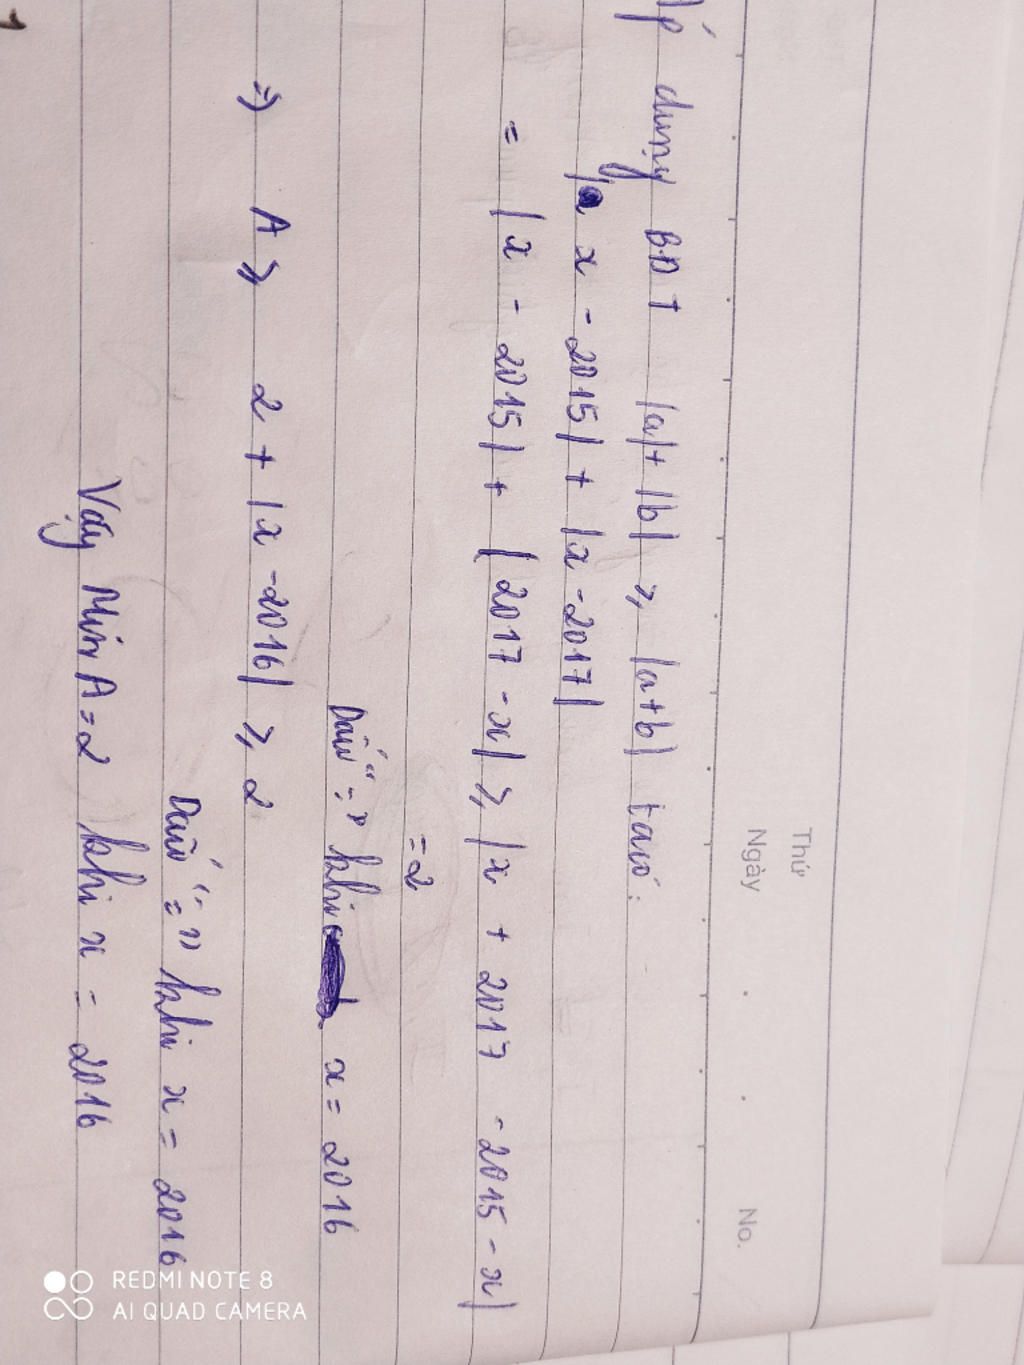 Thứ
Ngày
No.
Áp dụng BĐT |a| + |b| ≥ |a+b| ta có:
| x - 2015| + |x - 2017|
= |x - 2015| + |2017 - x| ≥ |x + 2017 - 2015 - x|
= 2
Dấu "=" khi x = 2016
=> A ≥ 2 + |x - 2016| ≥ 2
Dấu "=" khi x = 2016
Vậy Min A = 2 khi x = 2016
REDMI NOTE 8
AI QUAD CAMERA